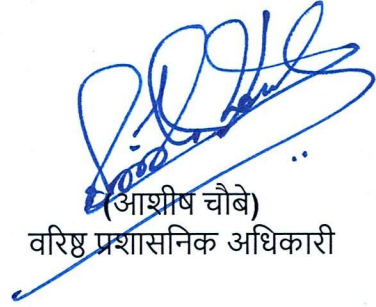 (आशीष चौबे)
वरिष्ठ प्रशासनिक अधिकारी